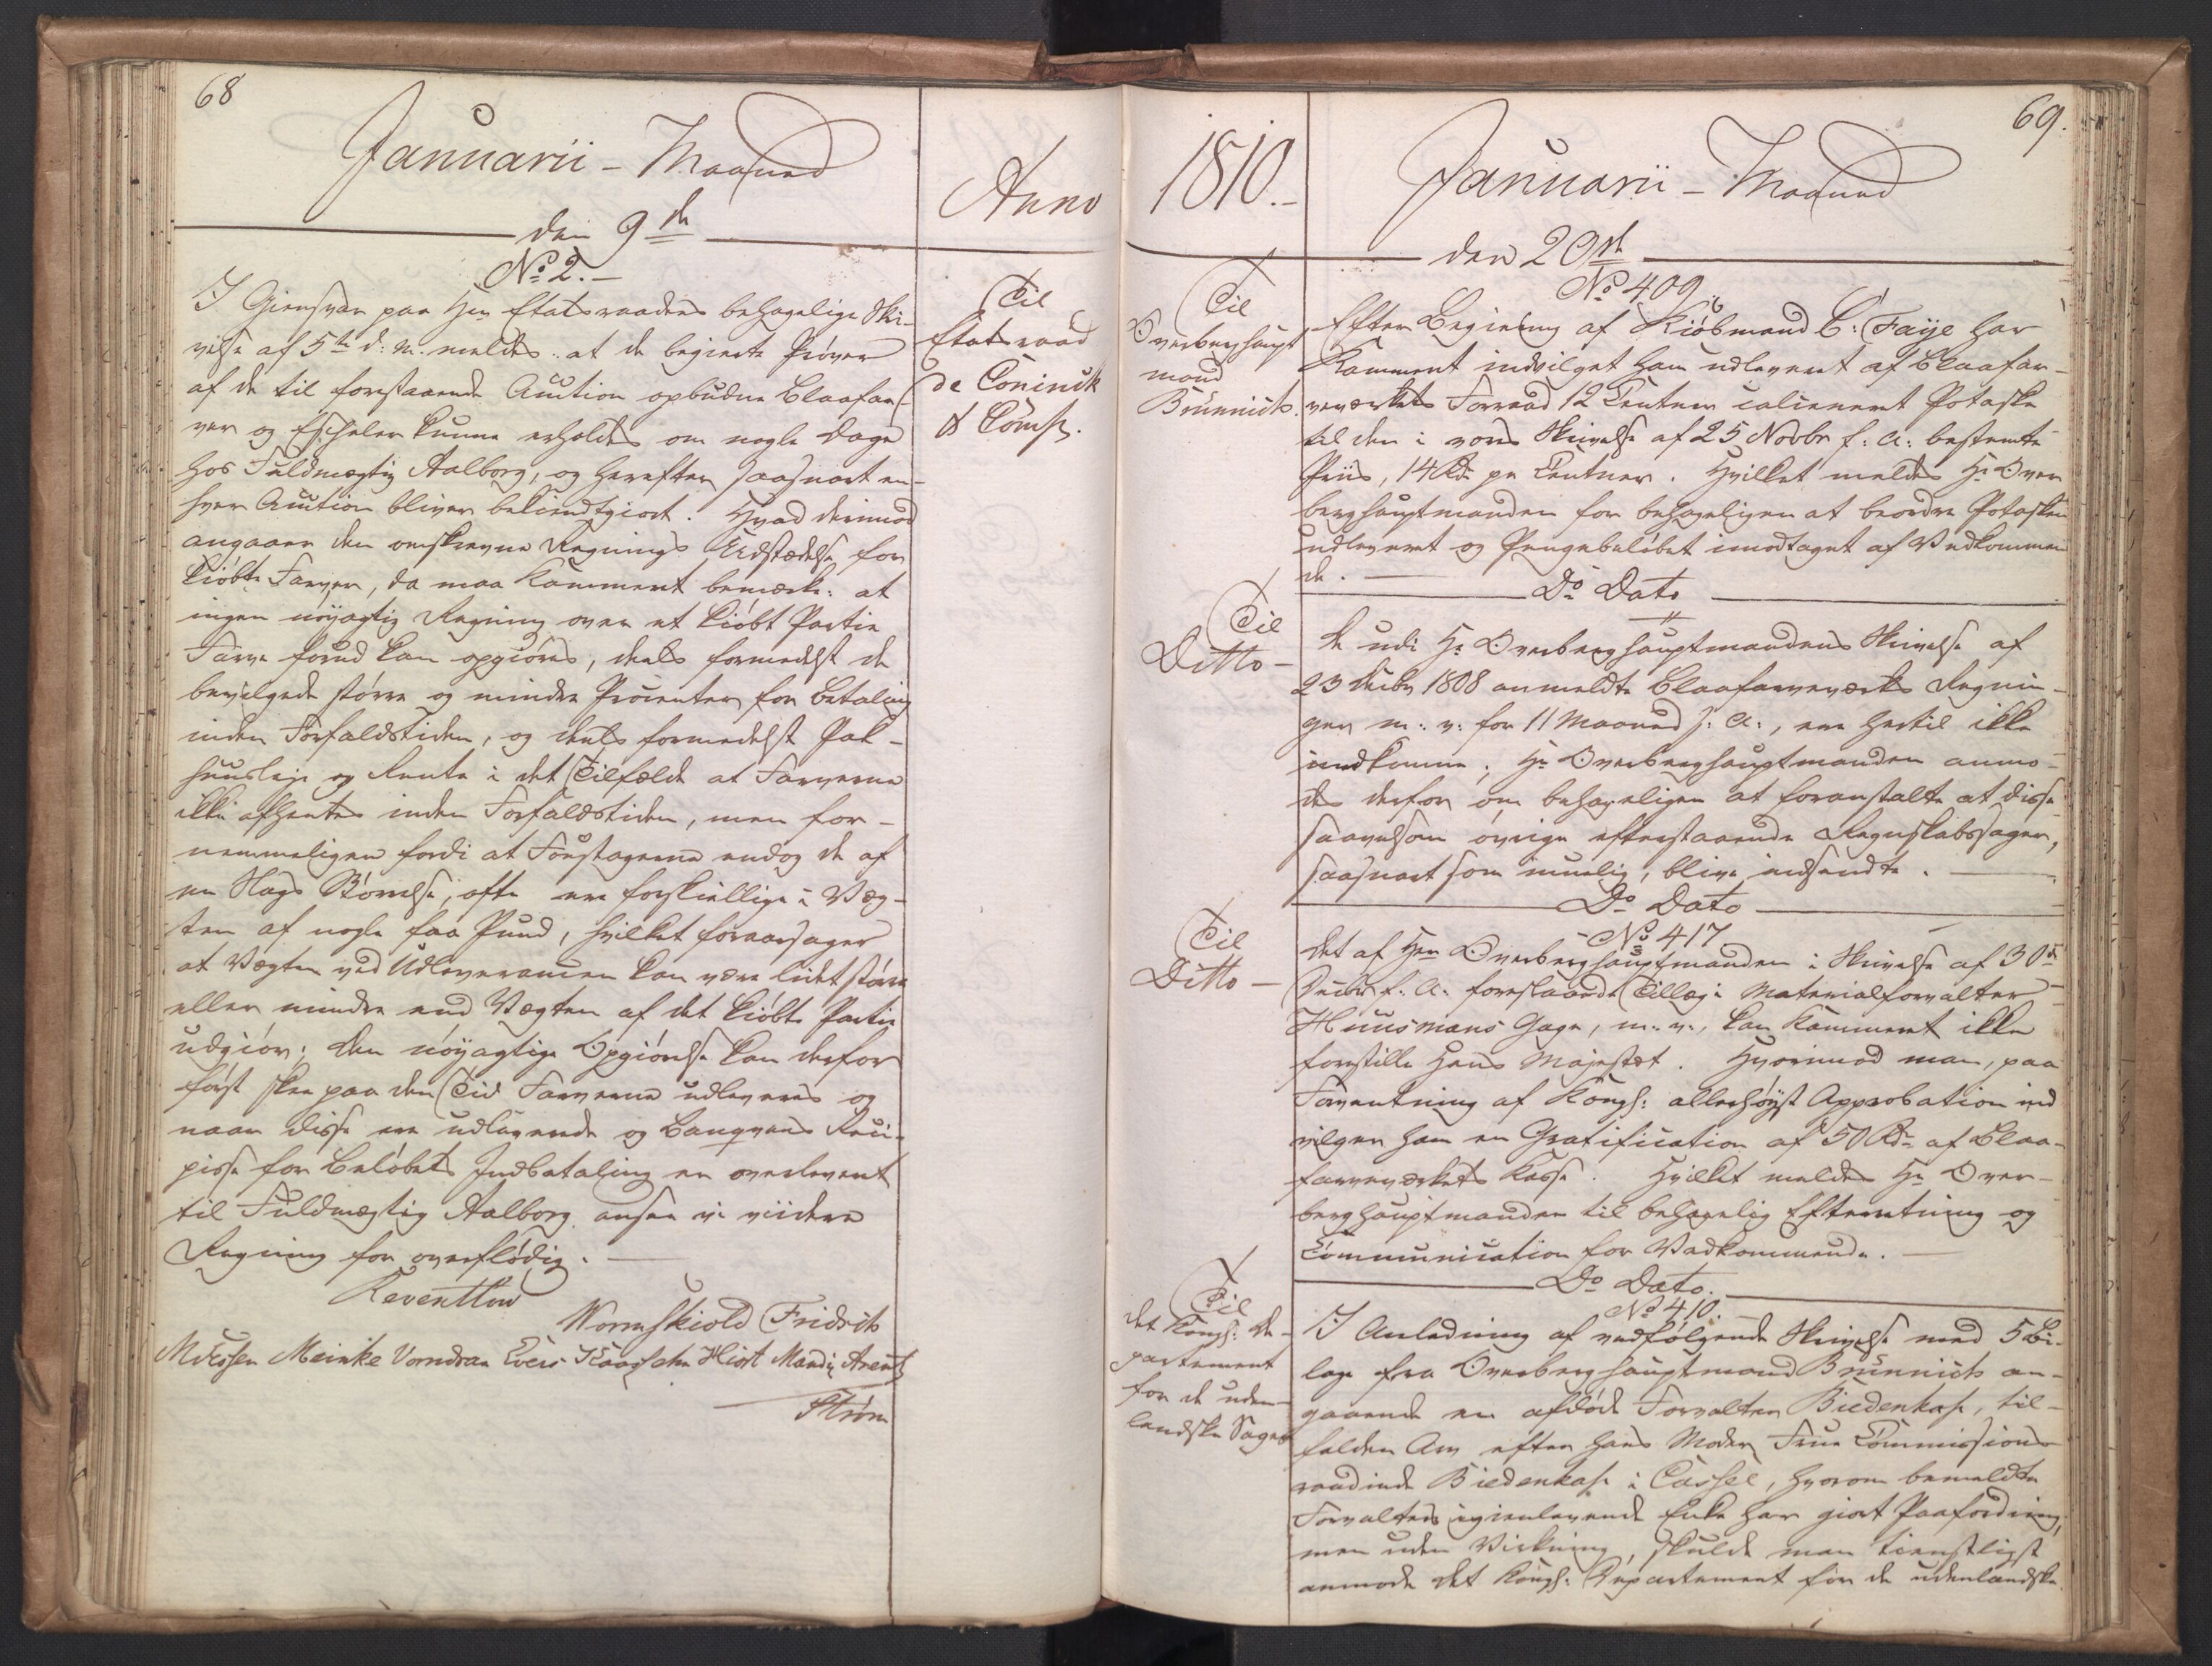 68
Januarii - Maaned
Anno
den 9de
No 2.
Til
Etatsraad
de Coninck
& Comp.
I Giensvar paa Herr Etatsraadens behagelige Skri-
velse af 5te d: m: meldes: at de begierte Prøver
af de til forestaaende Auction opbudne Blaafar-
ver og Escheler kunne erholdes om nogle Dage
hos Fuldmægtig Aalborg, og herefter saasnart en-
hver Auction bliver bekiendtgiort. Hvad derimod
angaaer den omskrevne Regnings Udstædelse for
kiøbte Farver, da maa Kammeret bemærke: at
ingen nøyagtig Regning over et kiøbt Partie
Farve forud kan opgiøres, deels formedelst de
bevilgede større og mindre Procenter for Betaling
inden Forfaldstiden, og deels formedelst Pak-
huusleje og Rente i det Tilfælde at Farverne
ikke afhentes inden Forfaldstiden, men for-
nemmeligen fordi at Foustagerne endog de af
en Slags Størrelse, ofte ere forskiellige i Væg-
ten af nogle faa Pund, hvilket foraarsager
at Vægten ved Udleveringen kan være lidet større
eller mindre end Vægten af det kiøbte Partie
udgiør; den nøyagtige Opgiørelse kan derfor
først skee paa den Tid Farverne udleveres og
naar disse ere udleverede og Banqvens Reci-
pisse for Beløbets Indbetaling er overleveret
til Fuldmægtig Aalborg ansee vi viidere
Regning for overflødig.
Reventlow
Wormskiold Fridrich
Meinke Vorndran Evers Hiort Mandix Arentz
Strøm
69.
1810.-
Januarii - Maaned
den 20de
No 409.
Til
Overberghaupt
mand
Brünnich.
Efter Begiering af Kiøbmand C: Faÿe har
Kammeret indvilget ham udleveret af Blaafar-
veværkets Forraad 12 Centner calcineret Potaske
til den i vores Skrivelse af 25 Novbr f: A: bestemte
Priis, 14 Rdr pr Centner. Hvilket meldes Hr Over
berghauptmanden for behageligen at beordre Potasken
udleveret og Pengebeløbet imodtaget af Vedkommen
de.
Do Dato
Til
Ditto -
De udi Hr Overberghauptmandens Skrivelse af
23 Decbr 1808 anmeldte Blaafarveværks Regnin-
ger m: v: for 11 Maaned s: A:, ere hertil ikke
indkomne; Hr Overberghauptmanden anmo-
des derfor om behageligen at foranstalte at disse
saavelsom øvrige efterstaaende Regnskabssager,
saasnart som muelig, blive indsendte.
Do Dato
No 417
Til
Ditto -
Det af Herr Overberghauptmanden i Skrivelse af 30te
Decbr f: A: foreslaaede Tillæg i Materialforvalter
Huusmans Gage, m: v:, kan Kammeret ikke
forestille Hans Majestæt. Hvorimod man, paa
Forventning af Kongl: allerhøyst Approbation ind
vilger ham en Gratification af 50 Rdr af Blaa-
farveværkets Kasse. Hvilket meldes Hr Over-
berghauptmanden til behagelig Efterretning og
Communication for Vedkommende.
Do Dato.
No 410.
Til
det Kongl: De-
partement
for de uden-
landske Sager
I Anledning af vedfølgende Skrivelse med 5 Bi-
lage fra Overberghauptmand Brünnich an-
gaaende en afdøde Forvalter Biedenkap, til-
falden Arv efter hans Moder Frue Commissions
raadinde Biedenkap i Cassel, hvorom bemeldte
Forvalters igienlevende Enke har giort Paafordring,
men uden Virkning, skulde man tienstligst
anmode det Kongl: Departement for de udenlandske